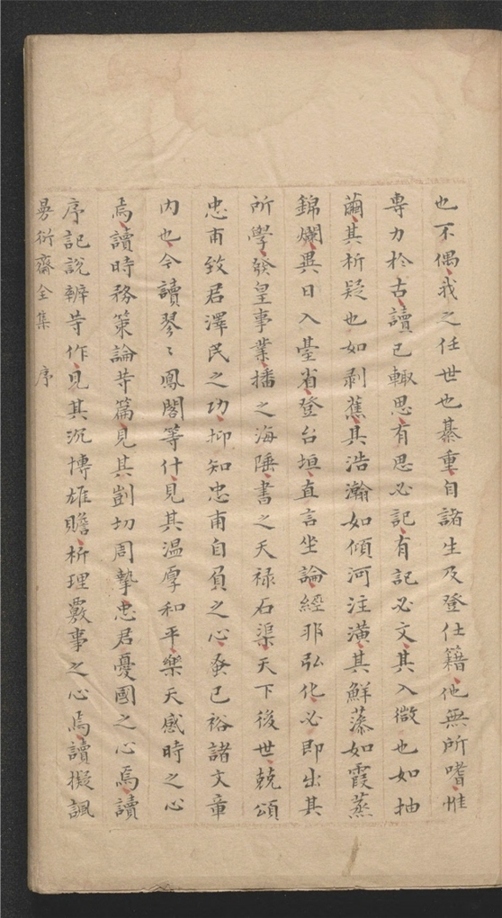 也不偶我之任世也綦重自諸生及登仕籍他無所嗜惟
專力於古讀已輙思有思必記有記必文其入微也如抽
繭其析疑也如剥蕉其浩瀚如傾河注潢其鮮藻如霞蒸
錦爛異日入臺省登台垣直言坐論經邦弘化必即出其
所學發皇事業播之海陲書之天禄石渠天下後世兢頌
忠甫致君澤民之功抑知忠甫自負之心蚤已裕諸文章
内也今讀琴〻鳳閣等什見其温厚和平樂天感時之心
焉讀時務策論䓁篇見其剴切周摯忠君憂國之心焉讀
序記說辨䓁作見其沉博雄贍析理覈事之心焉讀擬諷
昜衍齋全集　序